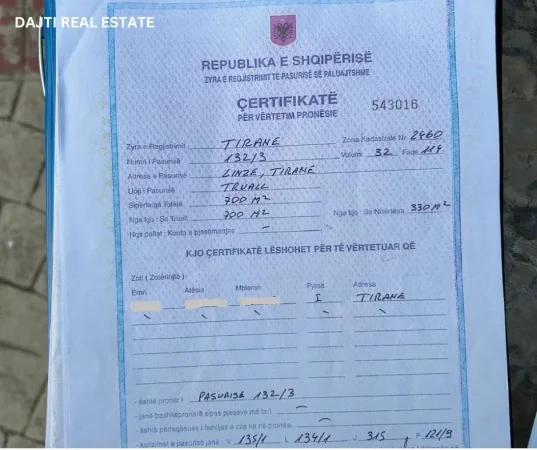 DAJTI REAL ESTATE
REPUBLIKA E SHQIPËRISË
ZYRA E REGJISTRIMIT TE PASURISË SË PALUAJTSHME
ÇERTIFIKATË
PËR VËRTETIM PRONËSIE
543016
Zyra e Regjistrimit TIRANE Zona Kadastrale Nr. 2460
Numri i Pasurisë 132/3 Volumi 32 Faqe 114
Adresa e Pasurisë LINZE, TIRANE
Lloji i Pasurisë TRUALL
Sipërfaqja Totale 700 M²
Nga kjo : Sa Truall 700 M² Nga kjo : Sa Ndërtesa 330 M²
Nqs pallat : Kuota e pjesëmarrjes — %
KJO ÇERTIFIKATË LËSHOHET PËR TË VËRTETUAR QË
Zoti ( Zotërinjtë )
Emri Atësia Mbiemri Pjesa Adresa
I TIRANE
- është pronar i PASURISË 132/3
- janë bashkëpronarë sipas pjesëve më lart —
- është përfaqësues i familjes e cila ka në pronësi —
- kufizimet e pasurisë janë : V 135/1 L 134/1 J 315, P 121/9